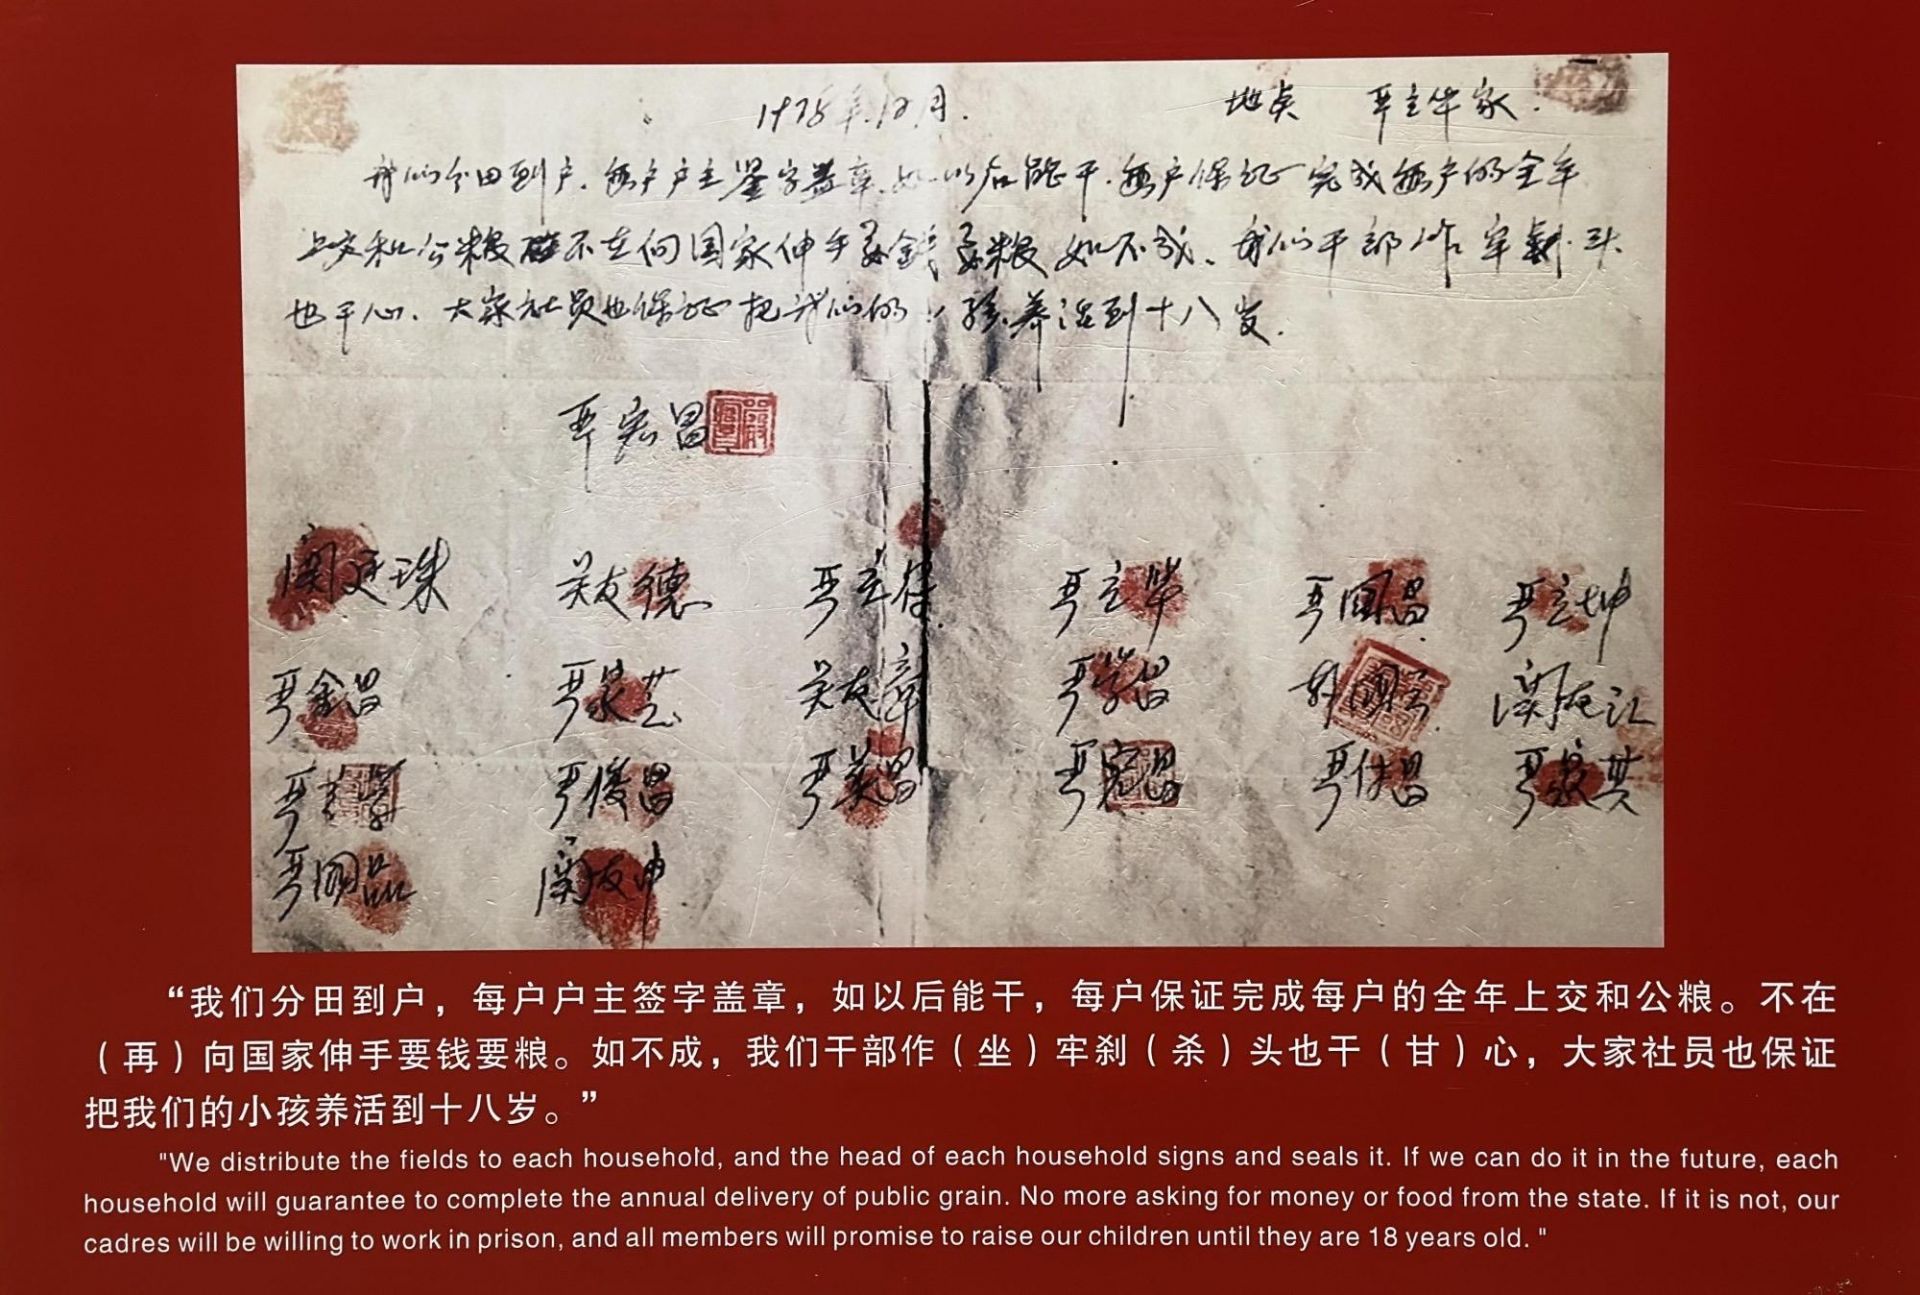 1978年12月. 地点 严立华家.
我们分田到户.每户户主鉴字盖章.如以后能干.每户保证完成每户的全年
上交和公粮不在向国家伸手要钱要粮如不成.我们干部作牢剎头
也干心.大家社员也保证把我们的小孩养活到十八岁.
严宏昌
关廷珠 关友德 严立符 严立华 严国昌 严立坤
严金昌 严家芝 关友章 严学昌 韩国云 关友江
严立学 严俊昌 严美昌 严宏昌 严付昌 严家其
严国品 关友申
“我们分田到户，每户户主签字盖章，如以后能干，每户保证完成每户的全年上交和公粮。不在
（再）向国家伸手要钱要粮。如不成，我们干部作（坐）牢刹（杀）头也干（甘）心，大家社员也保证
把我们的小孩养活到十八岁。”
"We distribute the fields to each household, and the head of each household signs and seals it. If we can do it in the future, each
household will guarantee to complete the annual delivery of public grain. No more asking for money or food from the state. If it is not, our
cadres will be willing to work in prison, and all members will promise to raise our children until they are 18 years old. "